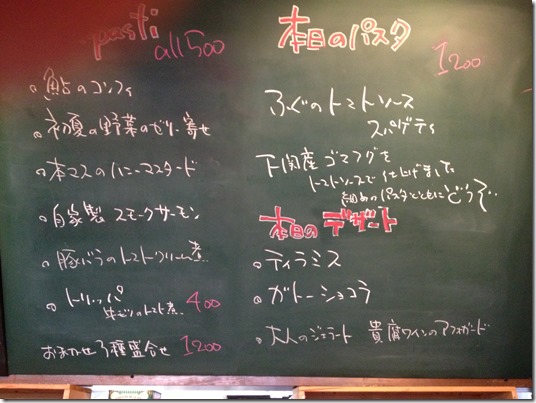 pasti
all 500
・鮎のコンフィ
・初夏の野菜のゼリー寄せ
・本マスのハニーマスタード
・自家製 スモークサーモン
・豚バラのトマトクリーム煮
・トリッパ 400
牛モツのトマト煮
おまかせ3種盛合せ 1200
本日のパスタ
1200
ふぐのトマトソース
スパゲティ
下関産ゴマフグを
トマトソースで仕上げました。
細めのパスタとともにどうぞ。
本日のデザート
・ティラミス
・ガトーショコラ
・大人のジェラート 貴腐ワインのアフォガード